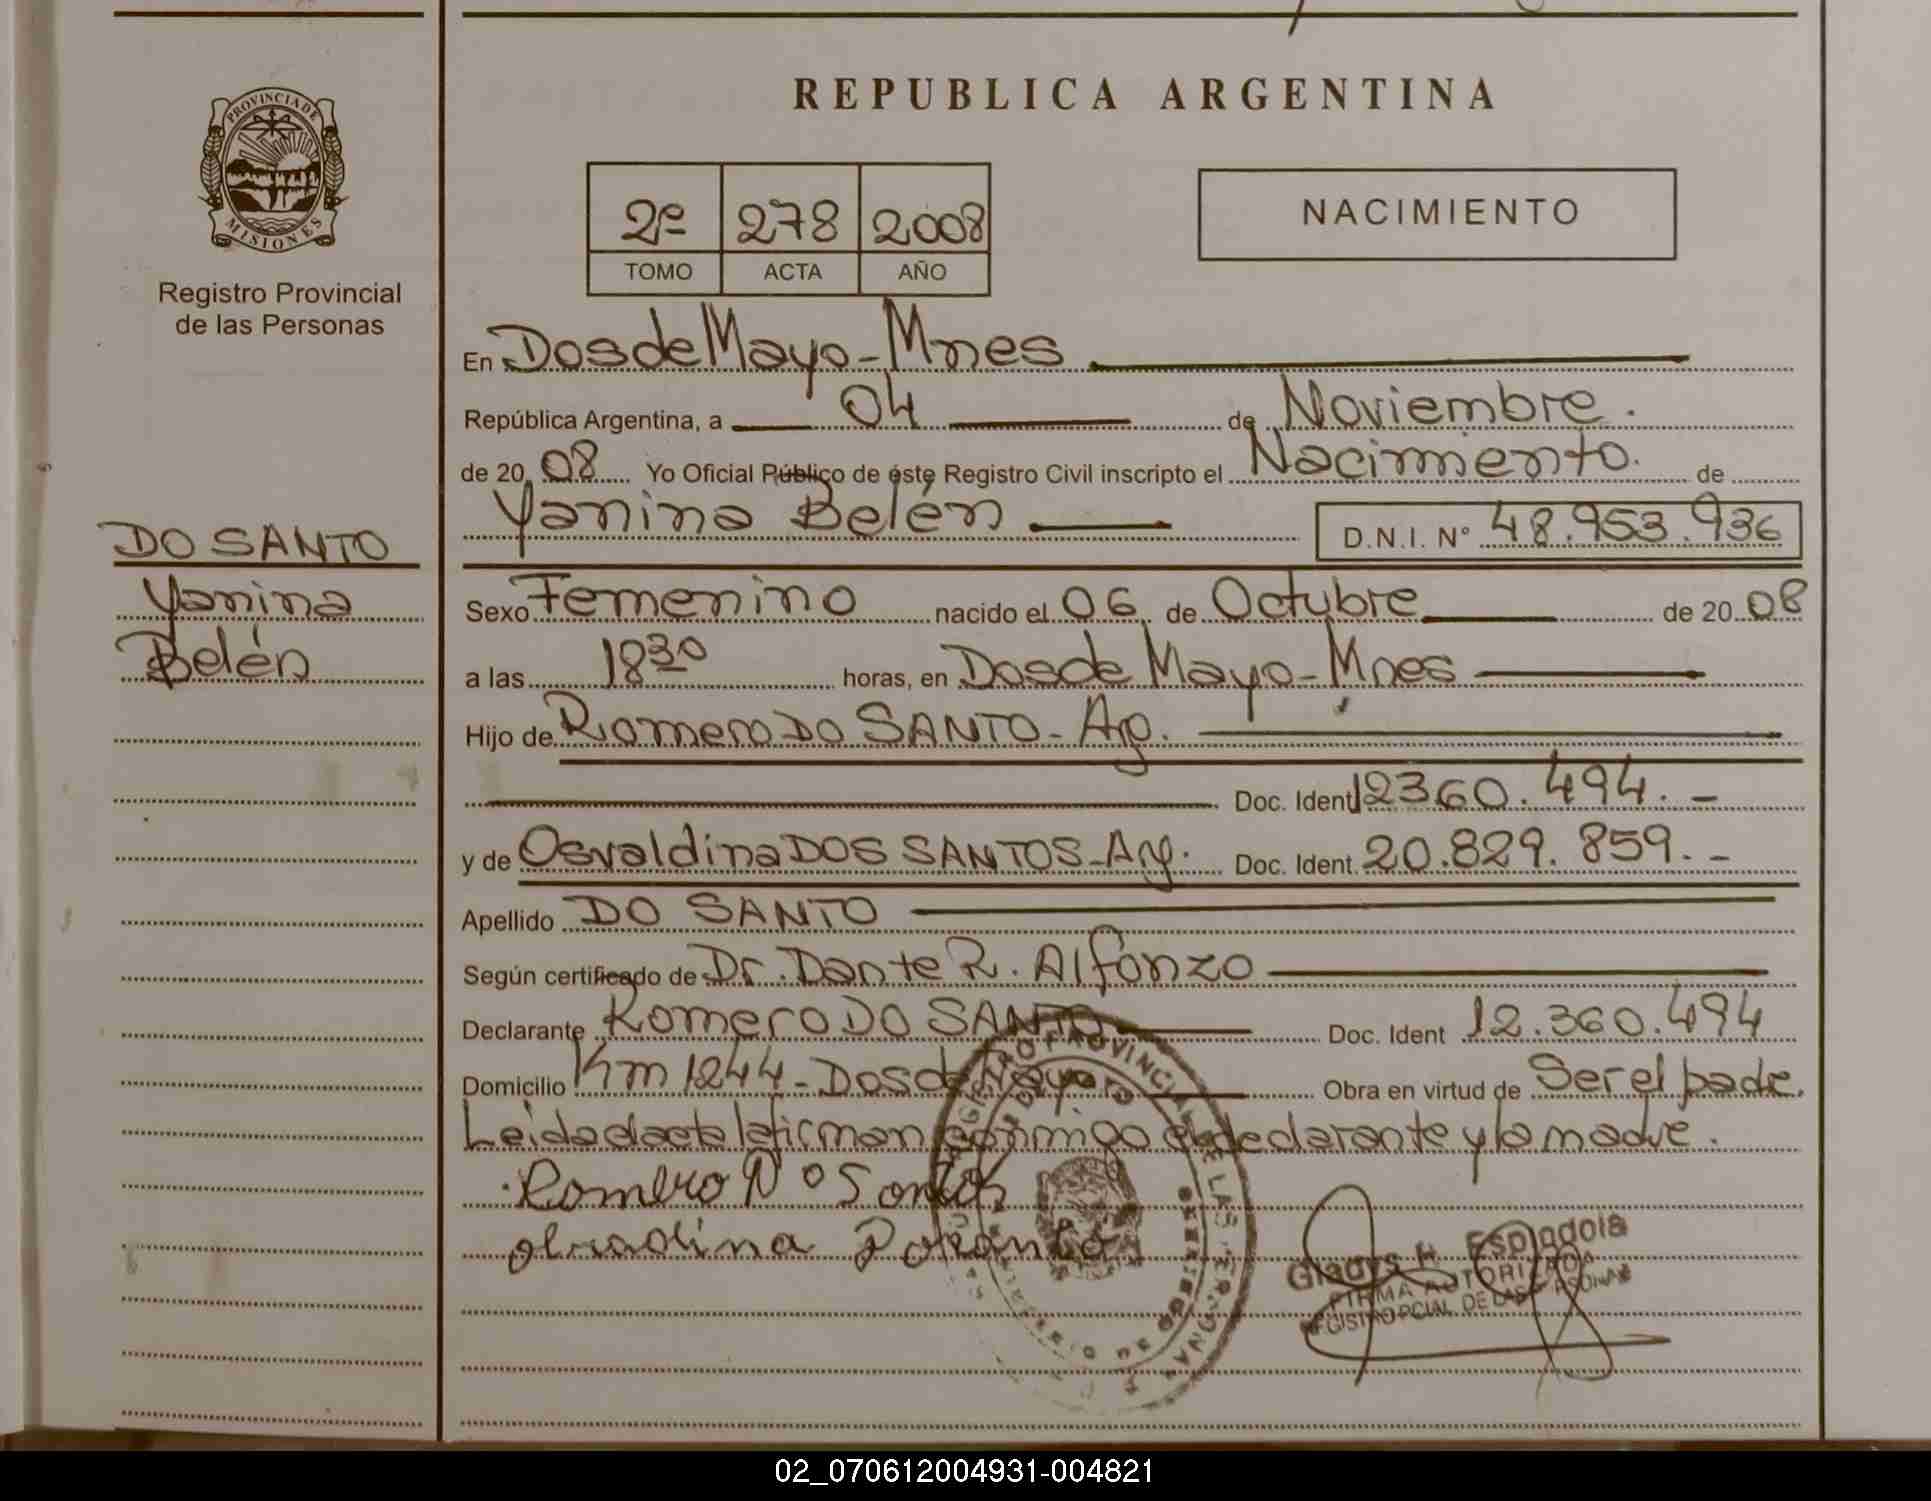 REPUBLICA ARGENTINA
PROVINCIA DE
MISIONES
Registro Provincial
de las Personas
2º 278 2008
TOMO ACTA AÑO
NACIMIENTO
En Dos de Mayo - Mnes
República Argentina, a 04 de Noviembre.
de 20 08 Yo Oficial Público de éste Registro Civil inscripto el Nacimiento. de
Yanina Belén D.N.I. Nº 48.953.936
DO SANTO
Yanina
Belén
Sexo Femenino nacido el 06 de Octubre de 20 08
a las 18 30 horas, en Dos de Mayo - Mnes
Hijo de Romero DO SANTO - Arg.
Doc. Ident 12360.494.-
y de Osvaldina DOS SANTOS - Arg. Doc. Ident. 20.829.859.-
Apellido DO SANTO
Según certificado de Dr. Dante R. Alfonzo
Declarante Romero DO SANTO Doc. Ident 12.360.494
Domicilio Km 1244 - Dos de Mayo Obra en virtud de Ser el padre.
Leida el acta la firman conmigo el declarante y la madre.
Romero
REGISTRO PROVINCIAL DE LAS PERSONAS
Gladys H. Espindola
FIRMA AUTORIZADA
REGISTRO PCIAL DE LAS PERSONAS
02_070612004931-004821